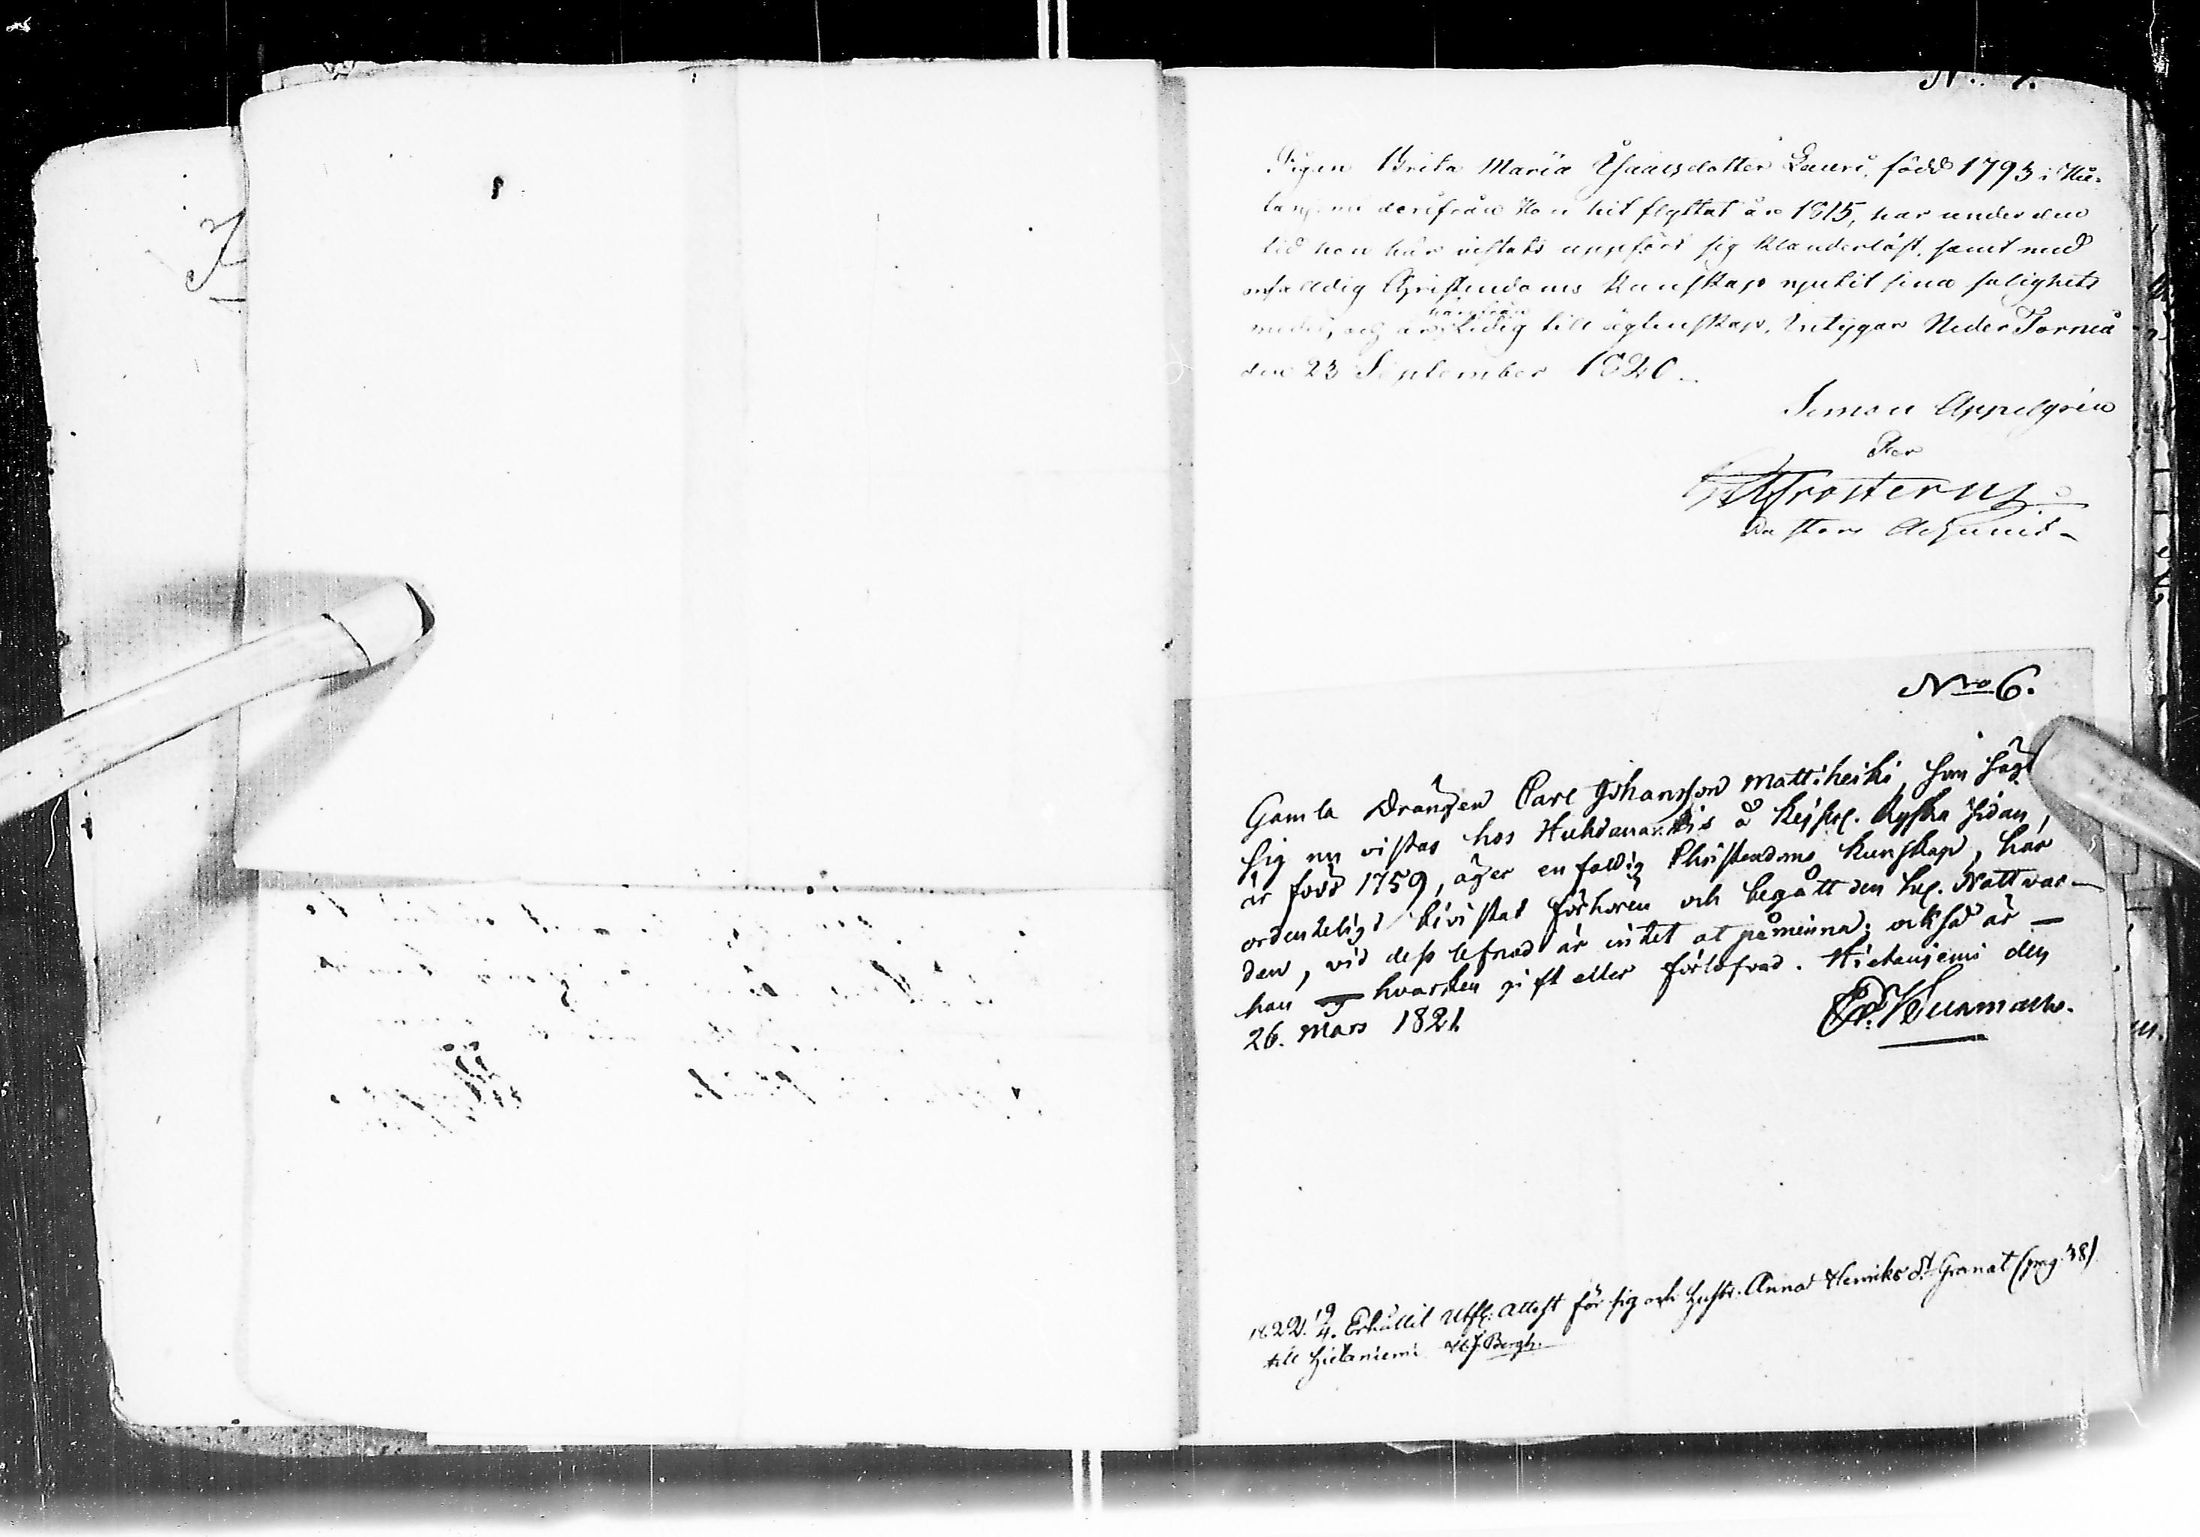 Pigan Brita Maria Isaacsdotter Lauri, född 1793 i Hie-
taniemi derifrån Hon hit flyttat år 1815, har under den
tid hon här vistats uppfört sig klanderlöst, samt med
enfalldig Christendoms Kunskap njutit sina salighets
medel, och är härifrån ledig till ägtenskap, Intygar Neder Torneå
den 23 September 1820.
Simon Appelgrén
Frosterus
Pastors Adjunct
Nro 6.
Gamla Drängen Carl Johansson Mattiheiki, som säg
sig nu vistas hos Huhdanantis å Kejserl. Ryska sidan,
är född 1759, äger enfaldig Christendoms kunskap, har
ordenteligt bivistat förhören och begått den hel. Nattvar-
den, vid dess lefnad är intet at påminna; också är
han hvarken gift eller förlofvad. Hietaniemi den
26. Mars 1821.
1822. 19/4. Erhållit Utfl. attest för sig och hustr. Anna Henriks dr Granat (pag. 38)
till Hietaniemi Bergh.